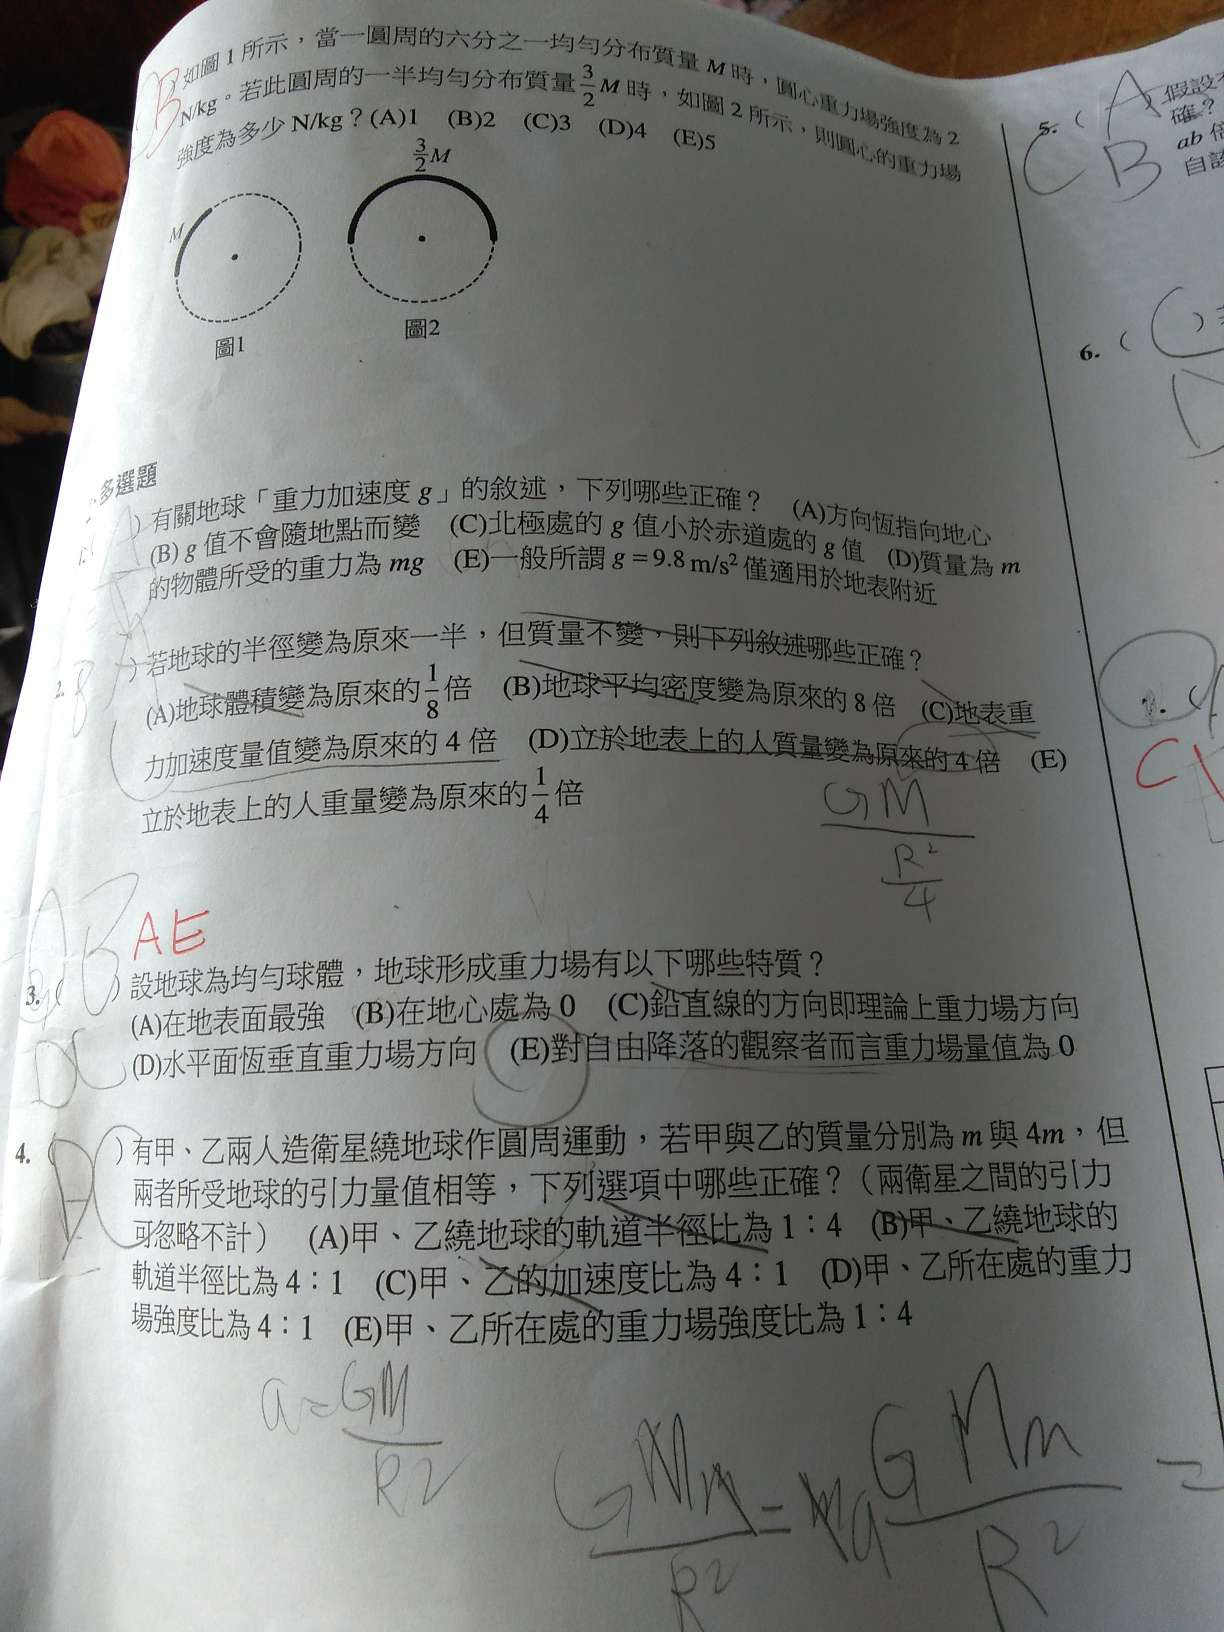 B
如圖 1 所示，當一圓周的六分之一均勻分布質量 M 時，圓心重力場強度為 2
N/kg。若此圓周的一半均勻分布質量 3/2 M 時，如圖 2 所示，則圓心的重力場
強度為多少 N/kg？(A)1 (B)2 (C)3 (D)4 (E)5
M
3/2 M
圖1
圖2
多選題
)有關地球「重力加速度 g」的敘述，下列哪些正確？ (A)方向恆指向地心
(B) g 值不會隨地點而變 (C)北極處的 g 值小於赤道處的 g 值 (D)質量為 m
的物體所受的重力為 mg (E)一般所謂 g = 9.8 m/s² 僅適用於地表附近
2.
)若地球的半徑變為原來一半，但質量不變，則下列敘述哪些正確？
(A)地球體積變為原來的 1/8 倍 (B)地球平均密度變為原來的 8 倍 (C)地表重
力加速度量值變為原來的 4 倍 (D)立於地表上的人質量變為原來的 4 倍 (E)
立於地表上的人重量變為原來的 1/4 倍
GM
R²
4
AE
3. ( )設地球為均勻球體，地球形成重力場有以下哪些特質？
(A)在地表面最強 (B)在地心處為 0 (C)鉛直線的方向即理論上重力場方向
(D)水平面恆垂直重力場方向 (E)對自由降落的觀察者而言重力場量值為 0
4. ( )有甲、乙兩人造衛星繞地球作圓周運動，若甲與乙的質量分別為 m 與 4m，但
兩者所受地球的引力量值相等，下列選項中哪些正確？（兩衛星之間的引力
可忽略不計） (A)甲、乙繞地球的軌道半徑比為 1：4 (B)甲、乙繞地球的
軌道半徑比為 4：1 (C)甲、乙的加速度比為 4：1 (D)甲、乙所在處的重力
場強度比為 4：1 (E)甲、乙所在處的重力場強度比為 1：4
a = GM
R2
GMm = ma
R²
GMm =
R²
5. ( A
C B
假設
確？
ab 倍
自該
6. ( C )
D
C